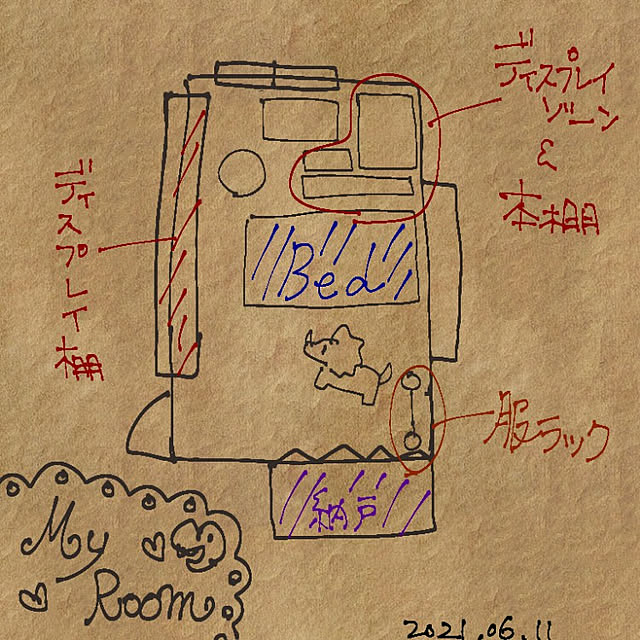 ディスプレイ
ゾーン
&
本棚
ディスプレイ棚
Bed
服ラック
納戸
My
Room
2021.06.11